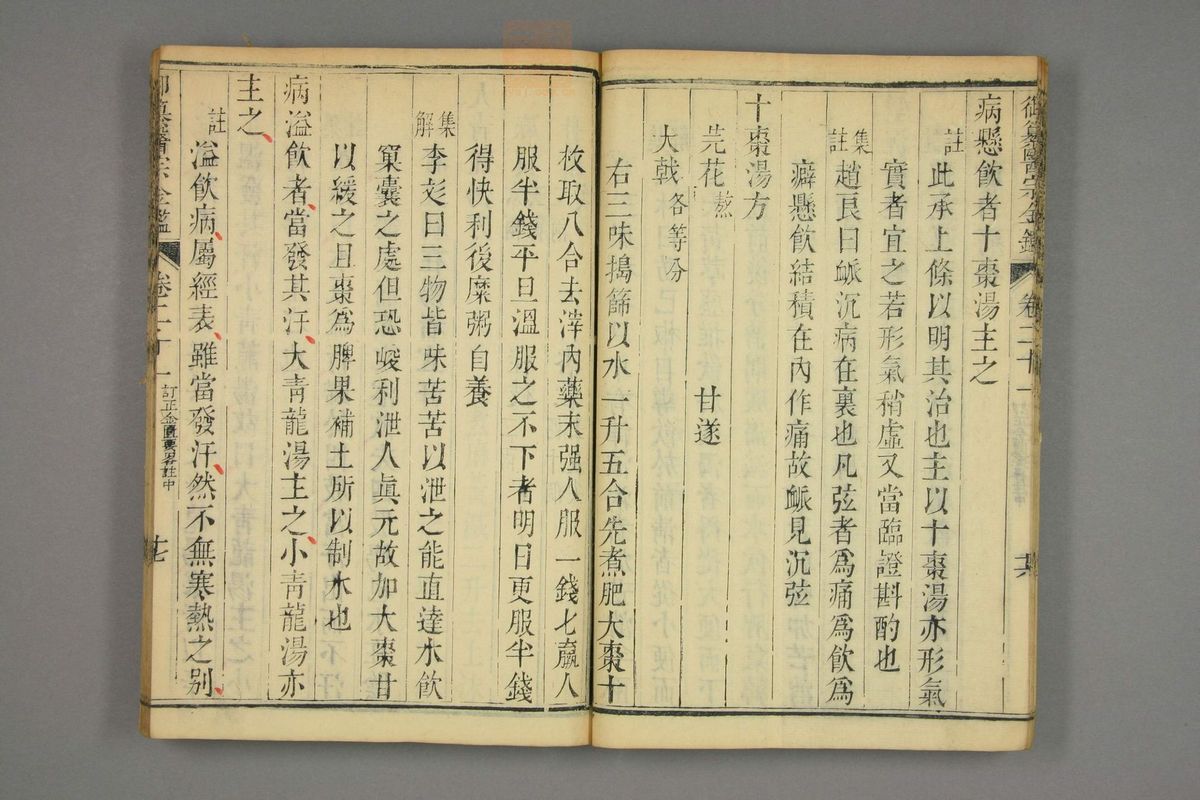 御纂醫宗金鑑 卷二十一
病懸飲者十棗湯主之
註 此承上條以明其治也主以十棗湯亦形氣
實者宜之若形氣稍虛又當臨證斟酌也
集註 趙良曰脈沉病在裏也凡弦者爲痛爲飲爲
癖懸飲結積在內作痛故脈見沉弦
十棗湯方
芫花熬
甘遂
大戟各等分
右三味搗篩以水一升五合先煮肥大棗十
枚取八合去滓內藥末强人服一錢匕羸人
服半錢平旦溫服之不下者明日更服半錢
得快利後糜粥自養
集解 李彣曰三物皆味苦苦以泄之能直達水飲
窠囊之處但恐峻利泄人眞元故加大棗甘
以緩之且棗爲脾果補土所以制水也
病溢飲者當發其汗大青龍湯主之小青龍湯亦
主之
註 溢飲病屬經表雖當發汗然不無寒熱之別
御纂醫宗金鑑 卷二十一 訂正金匱要略註中